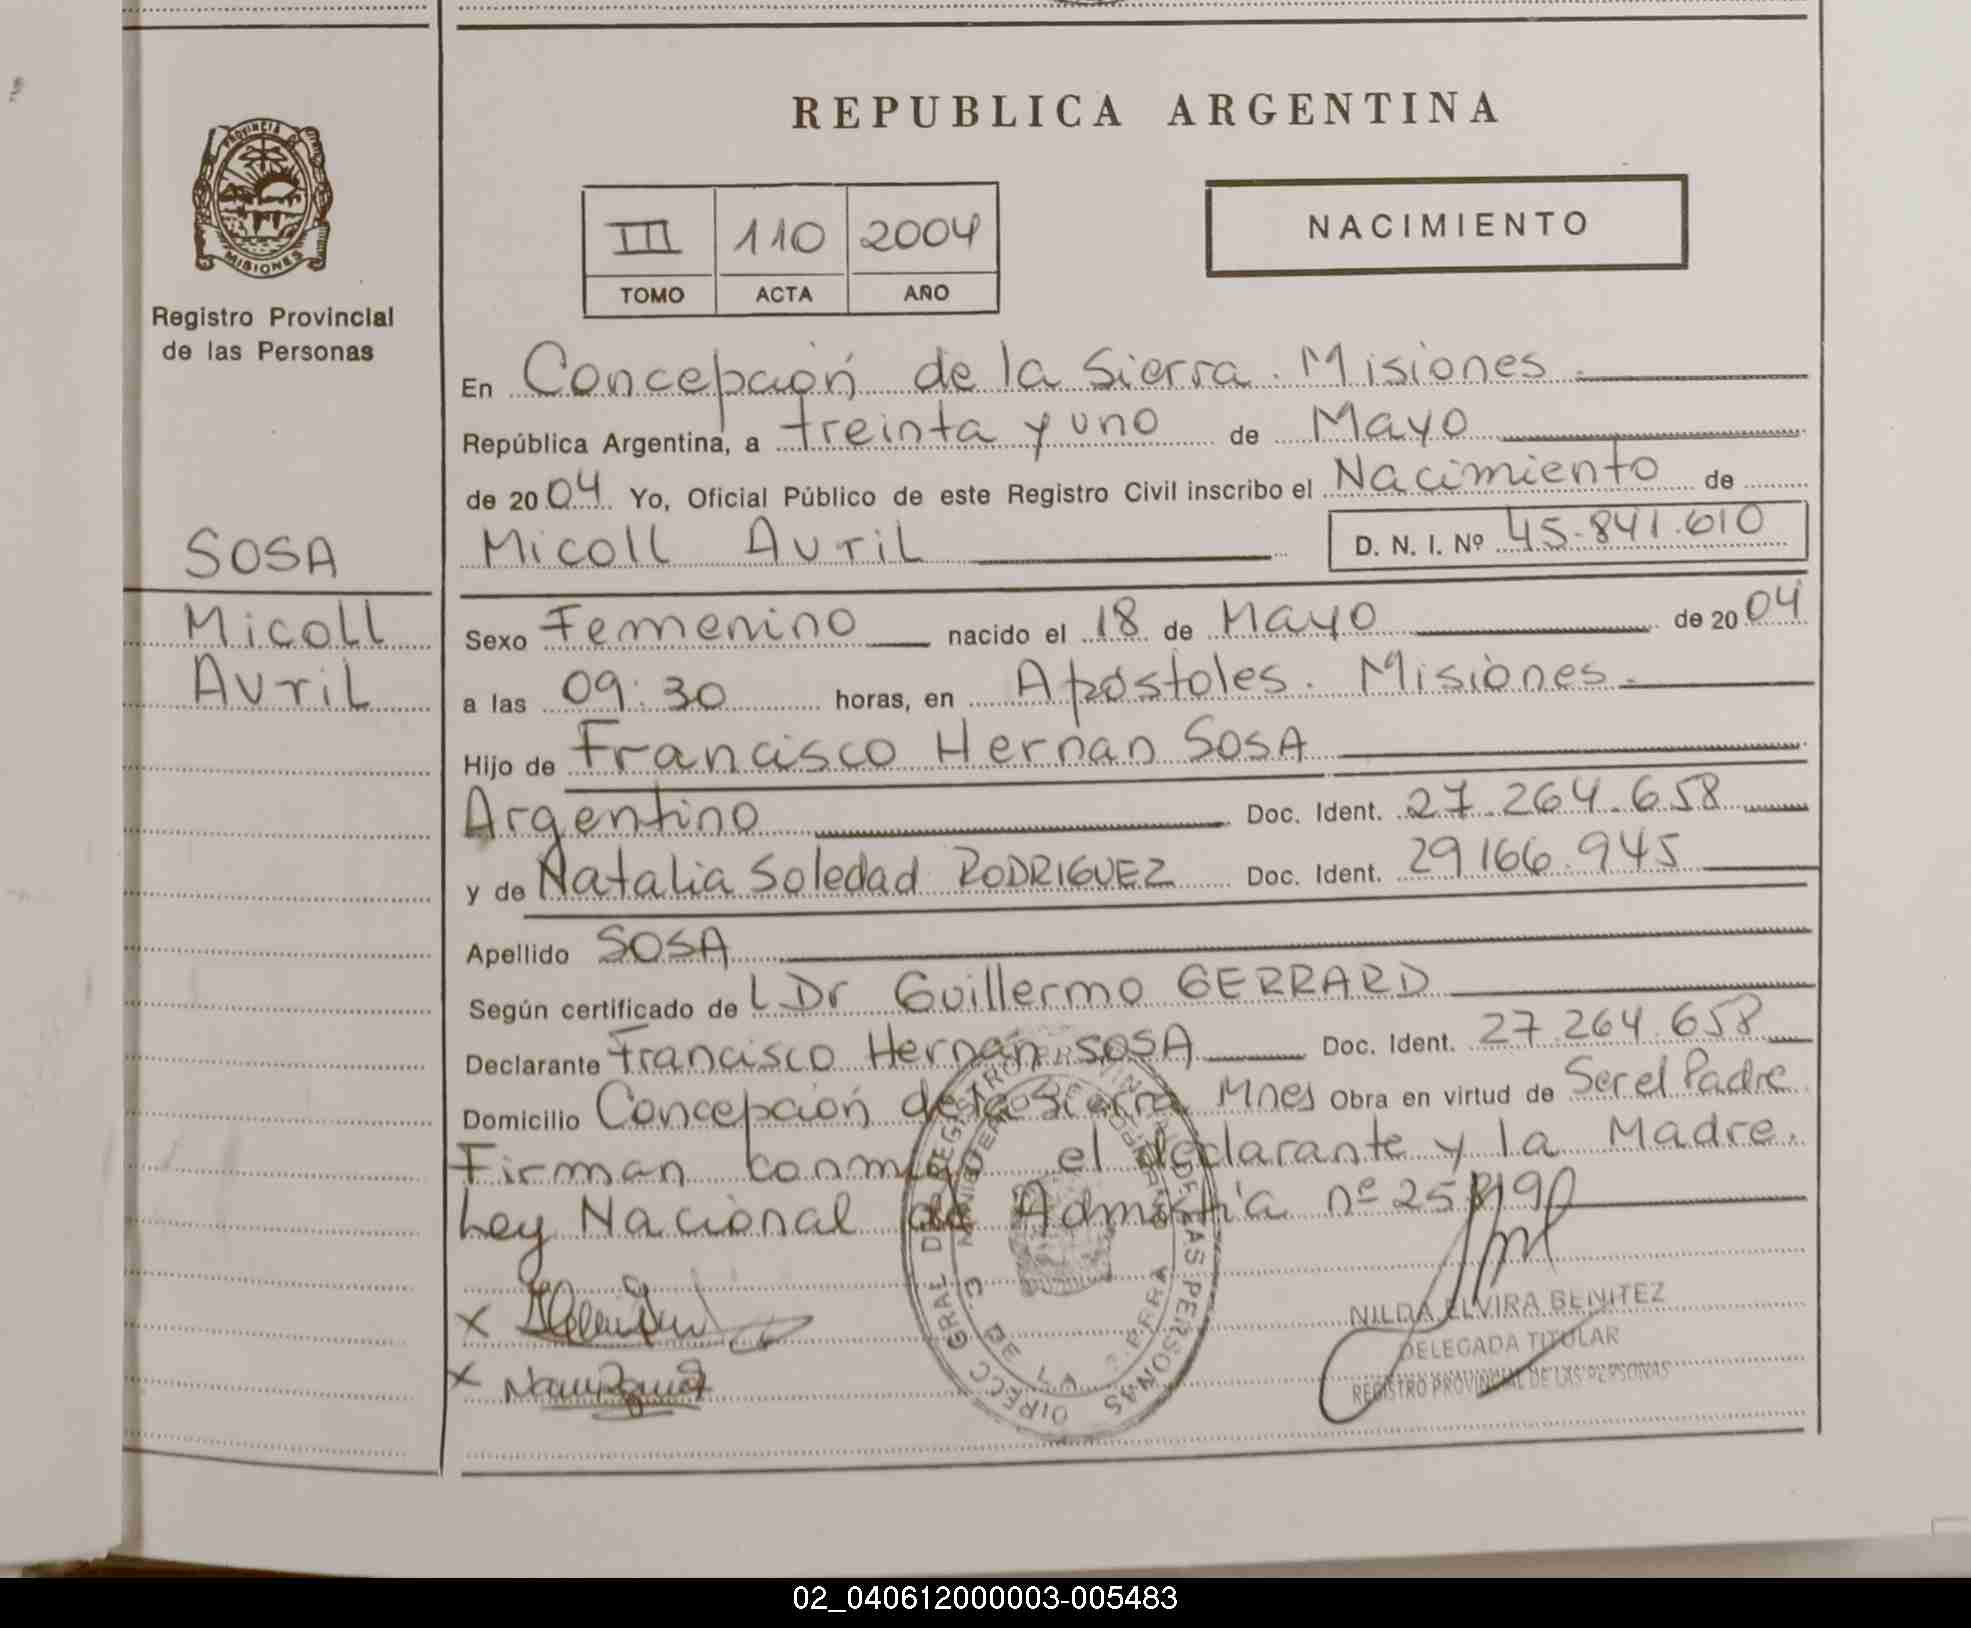 REPUBLICA ARGENTINA
PROVINCIA DE
MISIONES
Registro Provincial
de las Personas
III 110 2004
TOMO ACTA AÑO
NACIMIENTO
En Concepción de la Sierra. Misiones.
República Argentina, a treinta y uno de Mayo
de 2004 Yo, Oficial Público de este Registro Civil inscribo el Nacimiento de
SOSA
Micoll Avril
D. N. I. Nº 45.841.610
Micoll
Avril
Sexo Femenino nacido el 18 de Mayo de 2004
a las 09:30 horas, en Apóstoles. Misiones.
Hijo de Francisco Hernan SOSA
Argentino Doc. Ident. 27.264.658
y de Natalia Soledad RODRIGUEZ Doc. Ident. 29166.945
Apellido SOSA
Según certificado de L Dr Guillermo GERRARD
Declarante Francisco Hernán SOSA Doc. Ident. 27.264.658
Domicilio Concepción de la Sierra Mnes Obra en virtud de Ser el Padre
Firman conmigo el declarante y la Madre.
Ley Nacional de Admistía nº
X
X
DIRECC GRAL DEL REGISTRO DE LAS PERSONAS
NILDA ELVIRA BENITEZ
DELEGADA TITULAR
REGISTRO PROVINCIAL DE LAS PERSONAS
02_040612000003-005483